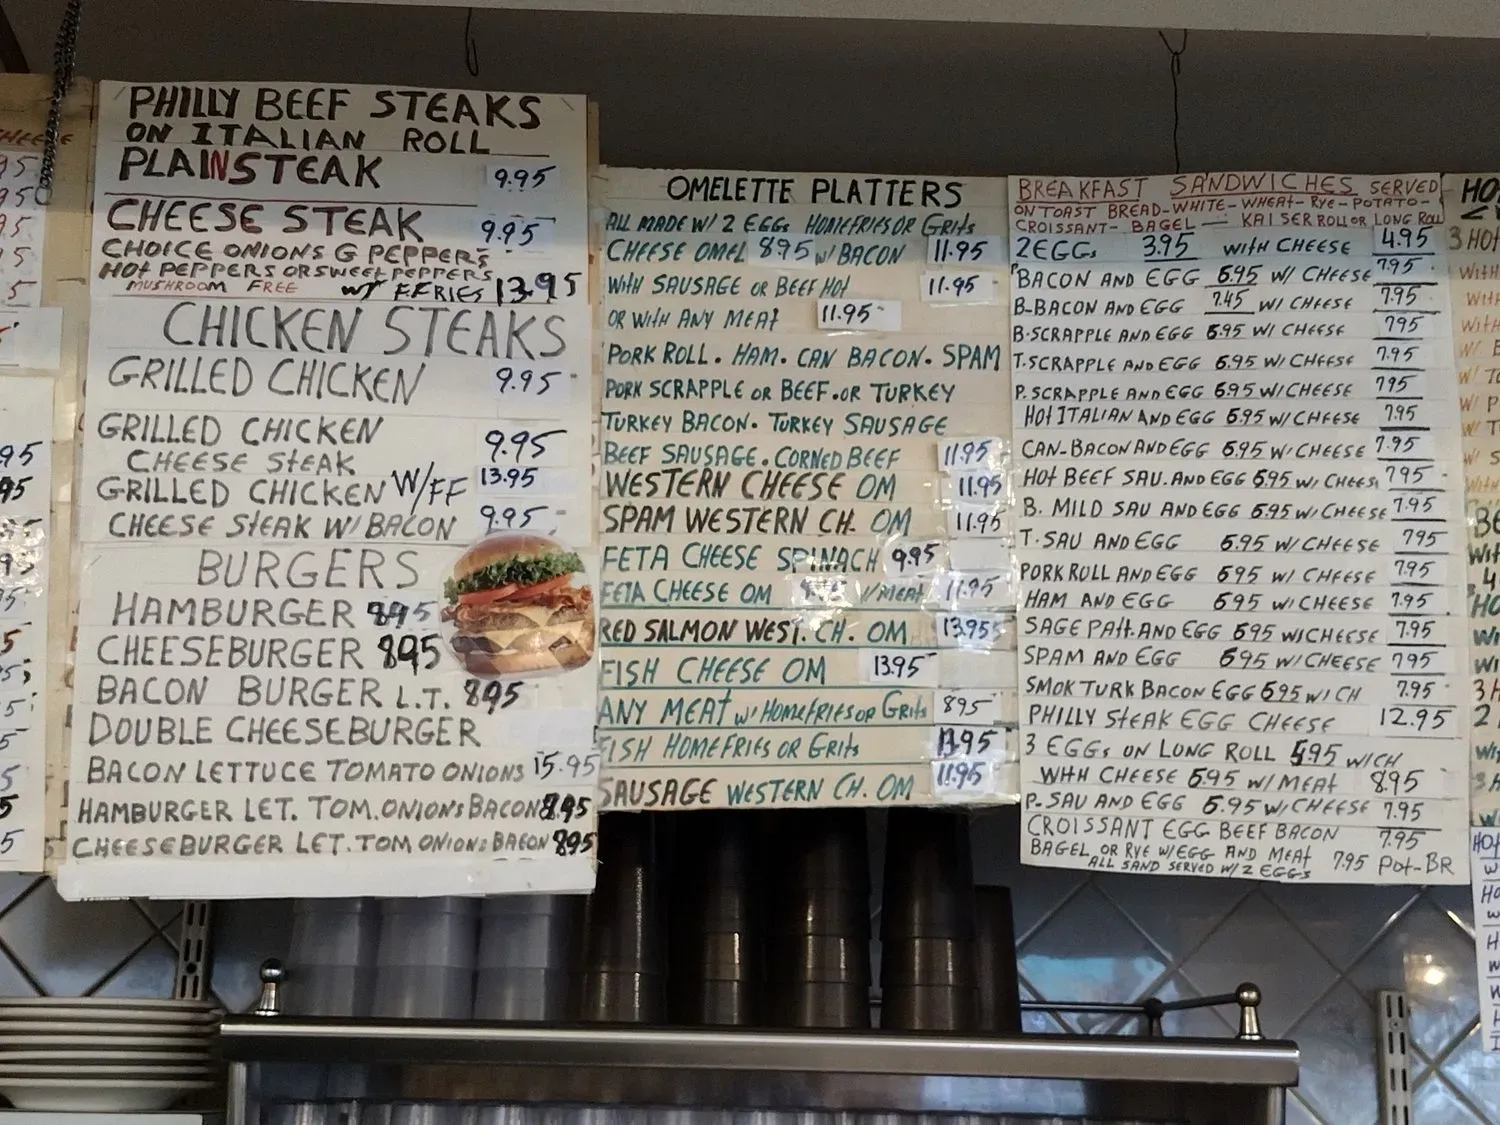 PHILLY BEEF STEAKS
ON ITALIAN ROLL
PLAIN STEAK 9.95
CHEESE STEAK 9.95
CHOICE ONIONS G PEPPERS
HOT PEPPERS OR SWEET PEPPERS
MUSHROOM FREE W/ F.FRIES 13.95
CHICKEN STEAKS
GRILLED CHICKEN 9.95
GRILLED CHICKEN
CHEESE STEAK 9.95
GRILLED CHICKEN W/FF 13.95
CHEESE STEAK W/ BACON 9.95
BURGERS
HAMBURGER 895
CHEESEBURGER 895
BACON BURGER L.T. 895
DOUBLE CHEESEBURGER
BACON LETTUCE TOMATO ONIONS 15.95
HAMBURGER LET. TOM. ONIONS BACON 8.95
CHEESEBURGER LET. TOM ONIONS BACON 895
OMELETTE PLATTERS
ALL MADE W/ 2 EGGS HOMEFRIES OR GRITS
CHEESE OMEL 8.95 W/ BACON 11.95
WITH SAUSAGE OR BEEF HOT 11.95
OR WITH ANY MEAT 11.95
PORK ROLL. HAM. CAN BACON. SPAM
PORK SCRAPPLE OR BEEF. OR TURKEY
TURKEY BACON. TURKEY SAUSAGE
BEEF SAUSAGE. CORNED BEEF 11.95
WESTERN CHEESE OM 11.95
SPAM WESTERN CH. OM 11.95
FETA CHEESE SPINACH 9.95
FETA CHEESE OM W/MEAT 11.95
RED SALMON WEST. CH. OM 13.95
FISH CHEESE OM 13.95
ANY MEAT W/ HOMEFRIES OR GRITS 895
FISH HOMEFRIES OR GRITS 13.95
SAUSAGE WESTERN CH. OM 11.95
BREAKFAST SANDWICHES SERVED
ON TOAST BREAD-WHITE-WHEAT-RYE-POTATO-
CROISSANT- BAGEL — KAISER ROLL OR LONG ROLL
2 EGGS 3.95 WITH CHEESE 4.95
BACON AND EGG 6.95 W/ CHEESE 7.95
B-BACON AND EGG 7.45 W/ CHEESE 7.95
B.SCRAPPLE AND EGG 6.95 W/ CHEESE 795
T.SCRAPPLE AND EGG 6.95 W/ CHEESE 7.95
P.SCRAPPLE AND EGG 6.95 W/CHEESE 795
HOT ITALIAN AND EGG 6.95 W/CHEESE 7.95
CAN-BACON AND EGG 6.95 W/CHEESE 7.95
HOT BEEF SAU. AND EGG 6.95 W/ CHEESE 795
B. MILD SAU AND EGG 6.95 W/CHEESE 7.95
T. SAU AND EGG 6.95 W/ CHEESE 795
PORK ROLL AND EGG 695 W/ CHEESE 7.95
HAM AND EGG 695 W/CHEESE 7.95
SAGE PATT. AND EGG 695 W/CHEESE 7.95
SPAM AND EGG 695 W/CHEESE 795
SMOK TURK BACON EGG 695 W/ CH 7.95
PHILLY STEAK EGG CHEESE 12.95
3 EGGS ON LONG ROLL 5.95 W/CH
WITH CHEESE 6.95 W/ MEAT 8.95
P-SAU AND EGG 6.95 W/CHEESE 7.95
CROISSANT EGG BEEF BACON 7.95
BAGEL OR RYE W/EGG AND MEAT 7.95 POT-BR
ALL SAND SERVED W/ 2 EGGS